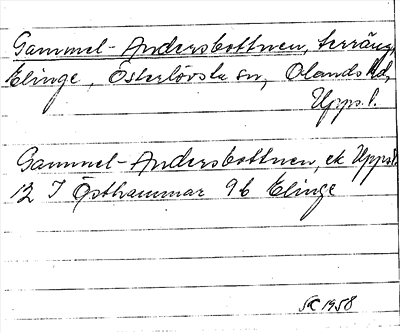 Gammel-Andersbottnen, terräng,
Elinge, Österlövsta sn, Olands hd,
Upps.l.
Gammel-Andersbottnen, ek Upps.l.
12 I Östhammar 9b Elinge
1958